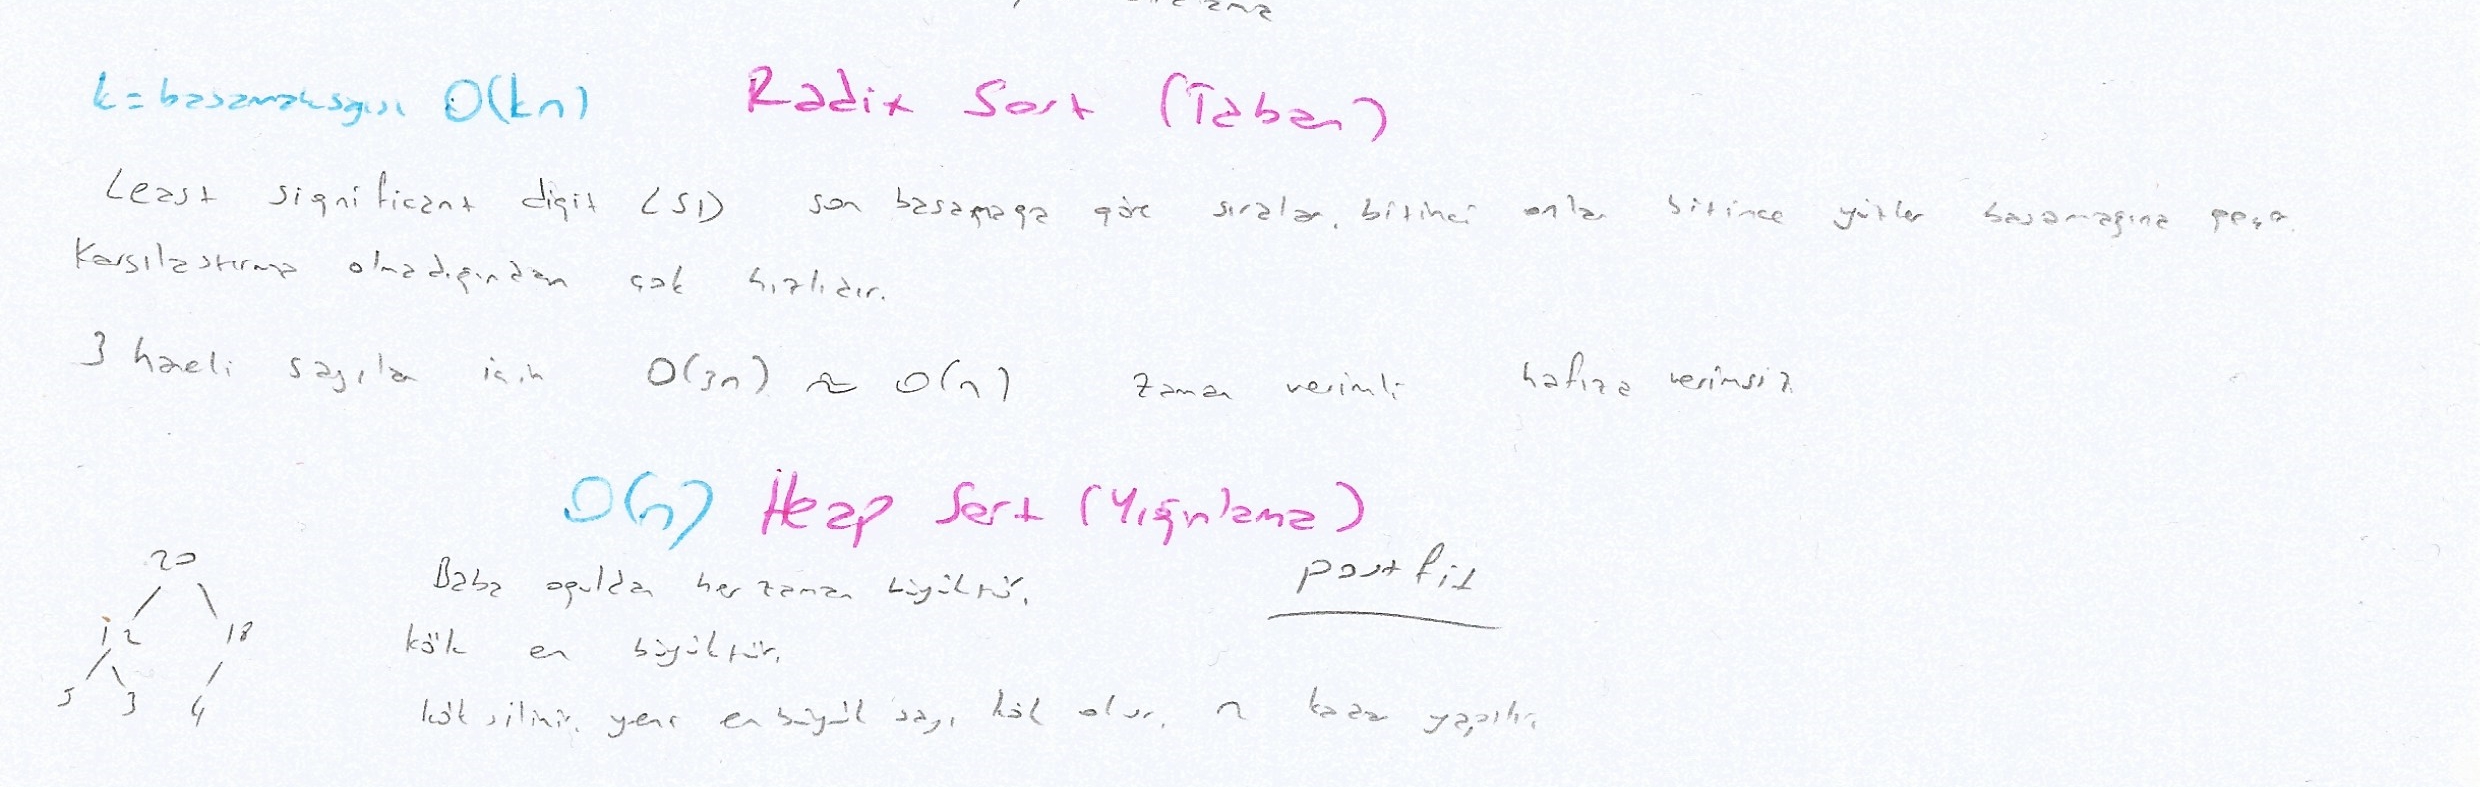 k=basamaksayısı O(kn) Radix Sort (Taban)
Least significant digit LSD son basamaga göre sıralar, bitince onlar bitince yüzler basamagına geçer.
Karsılastırma olmadıgından çok hızlıdır.
3 haneli sayılar için O(3n) ≈ O(n) zaman verimli hafıza verimsiz
O(n) Heap Sort (Yığınlama)
20
Baba oguldan her zaman büyüktür. postfix
12 18
kök en büyüktür.
5 3 4
kök silinir. yeni en büyük sayı kök olur. n kadar yapılır.